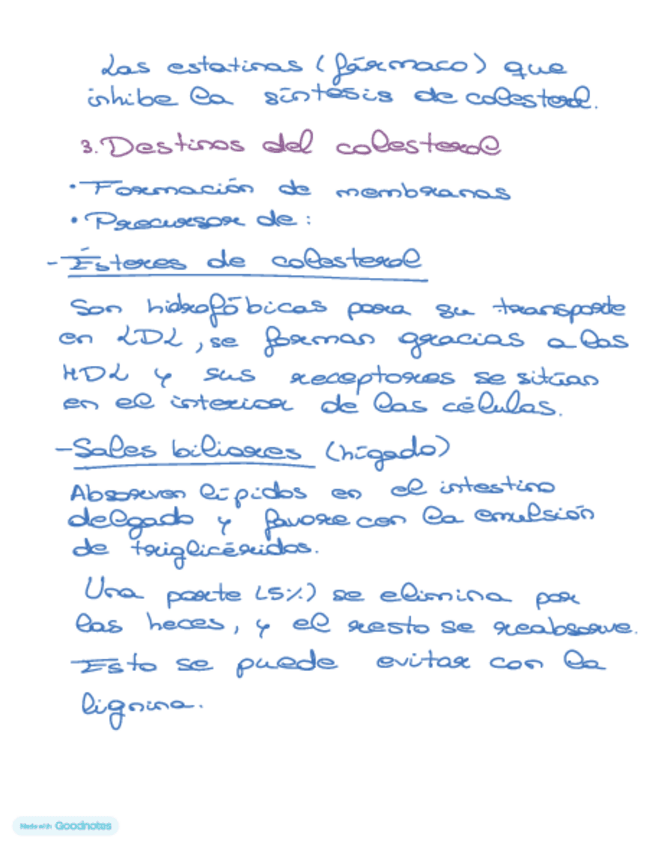 Las estatinas (fármaco) que
inhibe la síntesis de colesterol.
3. Destinos del colesterol
• Formación de membranas
• Precursor de:
- Ésteres de colesterol
Son hidrofóbicas para su transporte
en LDL, se forman gracias a las
HDL y sus receptores se sitúan
en el interior de las células.
- Sales biliares (hígado)
Absorven lípidos en el intestino
delgado y favorecen la emulsión
de triglicéridos.
Una parte (5%) se elimina por
las heces, y el resto se reabsorve.
Esto se puede evitar con la
lignina.
Made with Goodnotes